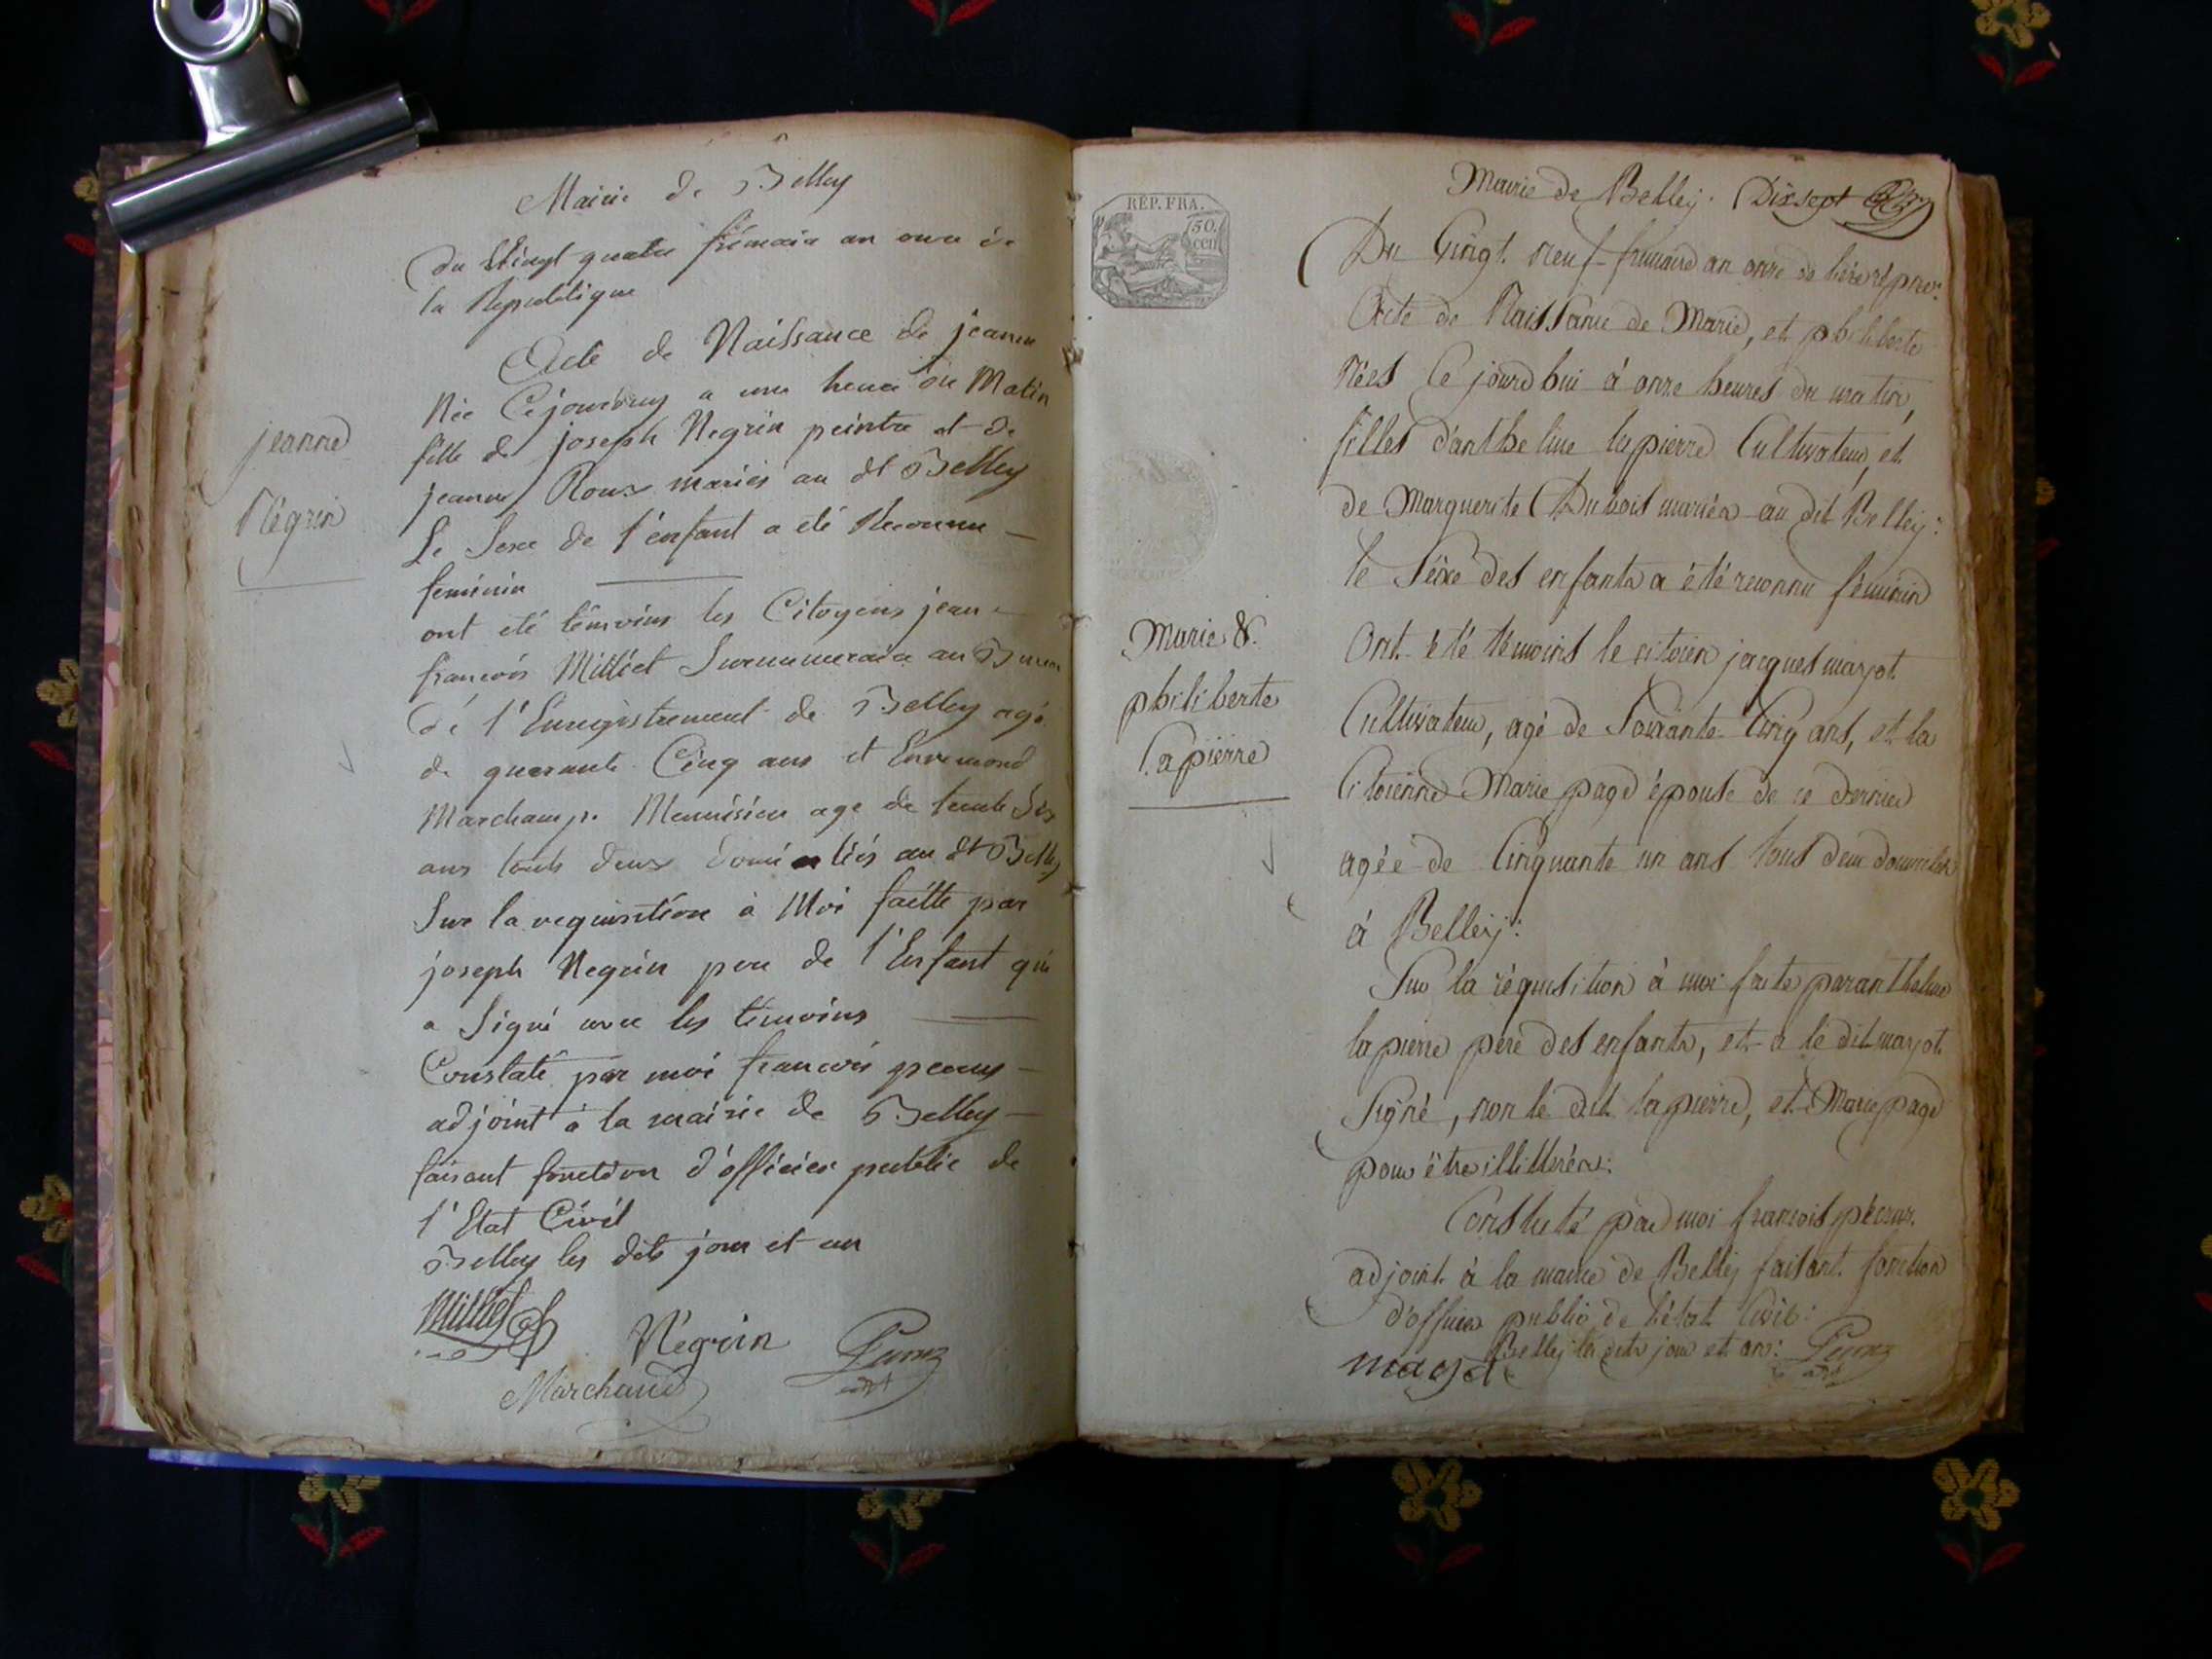 Mairie de Belley
du Vingt quatre frimaire an onze de
la Republique
Acte de Naissance de jeanne
Née Cejourduy a une heure du Matin
fille de joseph Negrin peintre et de
jeanne Roux mariés au dt Belley
Le Sexe de l'énfant a été Reconnu
feminin
ont été témoins les Citoyens jean
francois Milliet Surnumeraire au Bureau
dé l'Enregistrement de Belley agé
de quarante Cinq ans et Ennemond
Marchamp Menuisier age de trente Six
ans touts deux domiciliés au dt Belley
Sur la requisition à Moi faitte par
joseph Negrin pere de l'Enfant qui
a Signé avec les témoins
Constaté par moi francois
adjoint à la mairie de Belley
faisant fonction d'officier public de
l'Etat Civil
Belley les dits jour et an
Milliet
Négrin
Marchand
adjt
jeanne
Négrin
RÉP. FRA.
50.
cen
Mairie de Belley. Dix sept
Du Vingt neuf frimaire an onze de l'ere répne:
Acte de Naissance de Marie, et philiberte
Nées Ce jourdhui à onze heures du matin,
filles d'anthelme lapierre Cultivateur, et
de Marguerite Dubois mariés au dit Belley:
le Séxe des enfants a été reconnu féminin
Ont été témoins le citoien jacques marjot
Cultivateur, agé de Soixante Cinq ans, et la
Citoienne Marie page épouse de ce dernier
agée de Cinquante un ans tous deux domiciliés
à Belley:
Sur la réquisition à moi faite par anthelme
lapierre père des enfants, et a le dit marjot
Signé, non le dit lapierre, et Marie page
pour être illitterés:
Constaté par moi francois
adjoint à la mairie de Belley faisant fonction
d'officier public de l'état Civil:
Belley les dits jour et an:
Marie &
philiberte
Lapierre